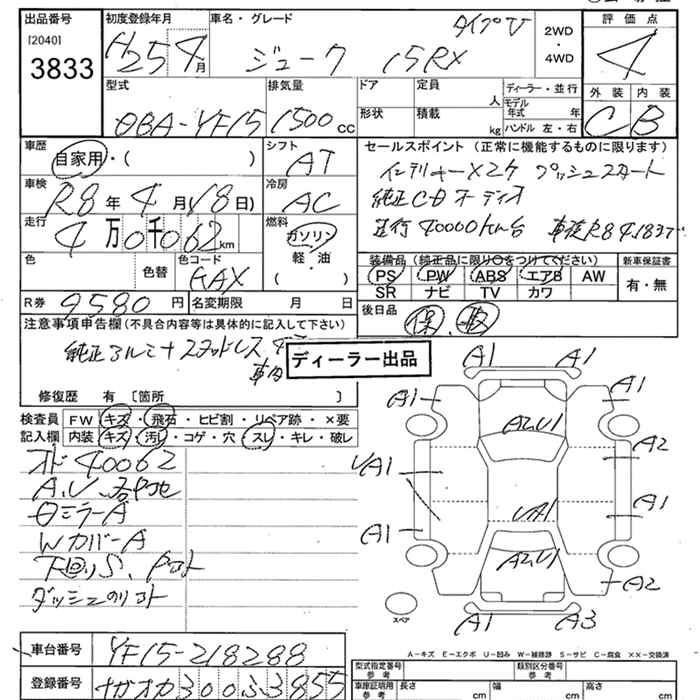 出品番号 初度登録年月 車名・グレード 評価点
[2040] 3833 H25年4月 ジューク 15RX タイプV 2WD・4WD 4
型式 排気量 ドア 定員 人 ディーラー・並行 外装 内装
DBA-YF15 1500cc 形状 積載 kg モデル年式 年 ハンドル 左・右 C B
車歴 自家用・( ) シフト AT セールスポイント(正常に機能するものに限ります)
インテリキーX2ケ プッシュスタート
車検 R8年4月18日) 冷房 AC 純正CDオーディオ
走行 4万0千062km 燃料 ガソリン 軽・油 走行40000km台 車検R8 4.18まで
色 色替 色コード GAX 装備品(純正品に限り○をつけてください) 新車保証書
PS PW ABS エアB AW 有・無
SR ナビ TV カワ
R券 9580円 名変期限 月 日 後日品 保・取
注意事項申告欄(不具合内容等は具体的に記入して下さい)
純正アルミ+スタッドレス
車内
ディーラー出品
修復歴 有 〔箇所 〕
検査員 FW キズ・飛石・ヒビ割・リペア跡・×要
記入欄 内装 キズ・汚レ・コゲ・穴・スレ・キレ・破レ
オド40062
A.U.
ミラーA
WカバーA
下回りS.
ダッシュ
A1 A1
A1 A1
A2U1
A2
A1
UA1
A1
A1
A2U1
A2
スペア
A1 A3
A-キズ E-エクボ U-凹み W-補修跡 S-サビ C-腐食 XX-交換済
車台番号 YF15-218288 型式指定番号 参考 類別区分番号 参考
登録番号 ナガオカ300ふ3855 車庫証明用 参考 長さ cm 幅 cm 高さ cm